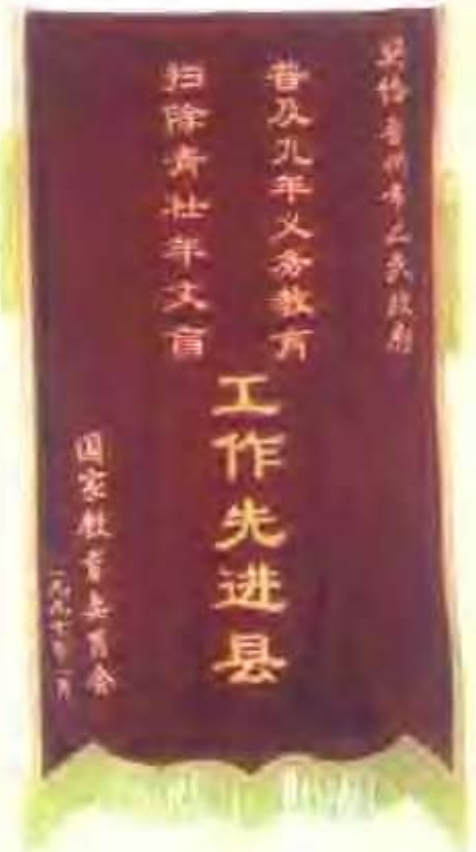 奖给州市人民政府
普及九年义务教育
扫除青壮年文盲
工作先进县
国家教育委员会
一九九七年一月